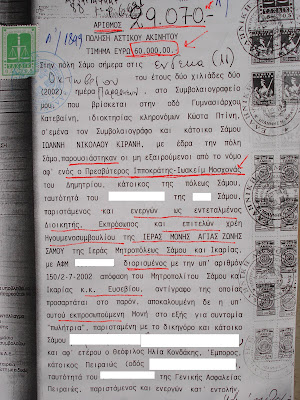 ΑΡΙΘΜΟΣ 29.070-
ΠΩΛΗΣΗ ΑΣΤΙΚΟΥ ΑΚΙΝΗΤΟΥ
ΤΙΜΗΜΑ ΕΥΡΩ 60.000.00.
Στην πόλη Σάμο σήμερα στις ένδεκα (11)
Οκτωβρίου του έτους δύο χιλιάδες δύο
(2002), ημέρα Παρασκευή, στο Συμβολαιογραφείο
μου, που βρίσκεται στην οδό Γυμνασιάρχου
Κατεβαίνη, ιδιοκτησίας κληρονόμων Κώστα Πτίνη,
σ'εμένα τον Συμβολαιογράφο και κάτοικο Σάμου
ΙΩΑΝΝΗ ΝΙΚΟΛΑΟΥ ΚΙΡΑΝΗ, με έδρα την πόλη
Σάμο, παρουσιάστηκαν οι μη εξαιρούμενοι από το νόμο
αφ' ενός ο Πρεσβύτερος Ιπποκράτης-Ιωακείμ Μοσχονάς
του Δημητρίου, κάτοικος της πόλεως Σάμου,
ταυτότητά του της Σάμου,
παριστάμενος και ενεργών ως εντεταλμένος
Διοικητής, Εκπρόσωπος και επιτελών χρέη
Ηγουμενοσυμβουλίου της ΙΕΡΑΣ ΜΟΝΗΣ ΑΓΙΑΣ ΖΩΝΗΣ
ΣΑΜΟΥ της Ιεράς Μητροπόλεως Σάμου και Ικαρίας,
με ΑΦΜ. διορισμένος με την υπ' αριθμόν
150/2-7-2002 απόφαση του Μητροπολίτου Σάμου και
Ικαρίας κ.κ. Ευσεβίου, αντίγραφο της οποίας
προσαρτάται στο παρόν, αποκαλουμένη δε η υπ'
αυτού εκπροσωπούμενη Μονή στο εξής για συντομία
"πωλήτρια", παρισταμένη με το δικηγόρο και κάτοικο
Σάμου
και αφ' ετέρου ο Θεόφιλος Ηλία Κονδάκης, Έμπορος,
κάτοικος Πειραιώς (οδός
ταυτότητά του της Γενικής Ασφαλείας
Πειραιώς, παριστάμενος και ενεργών κατ' εντολήν,